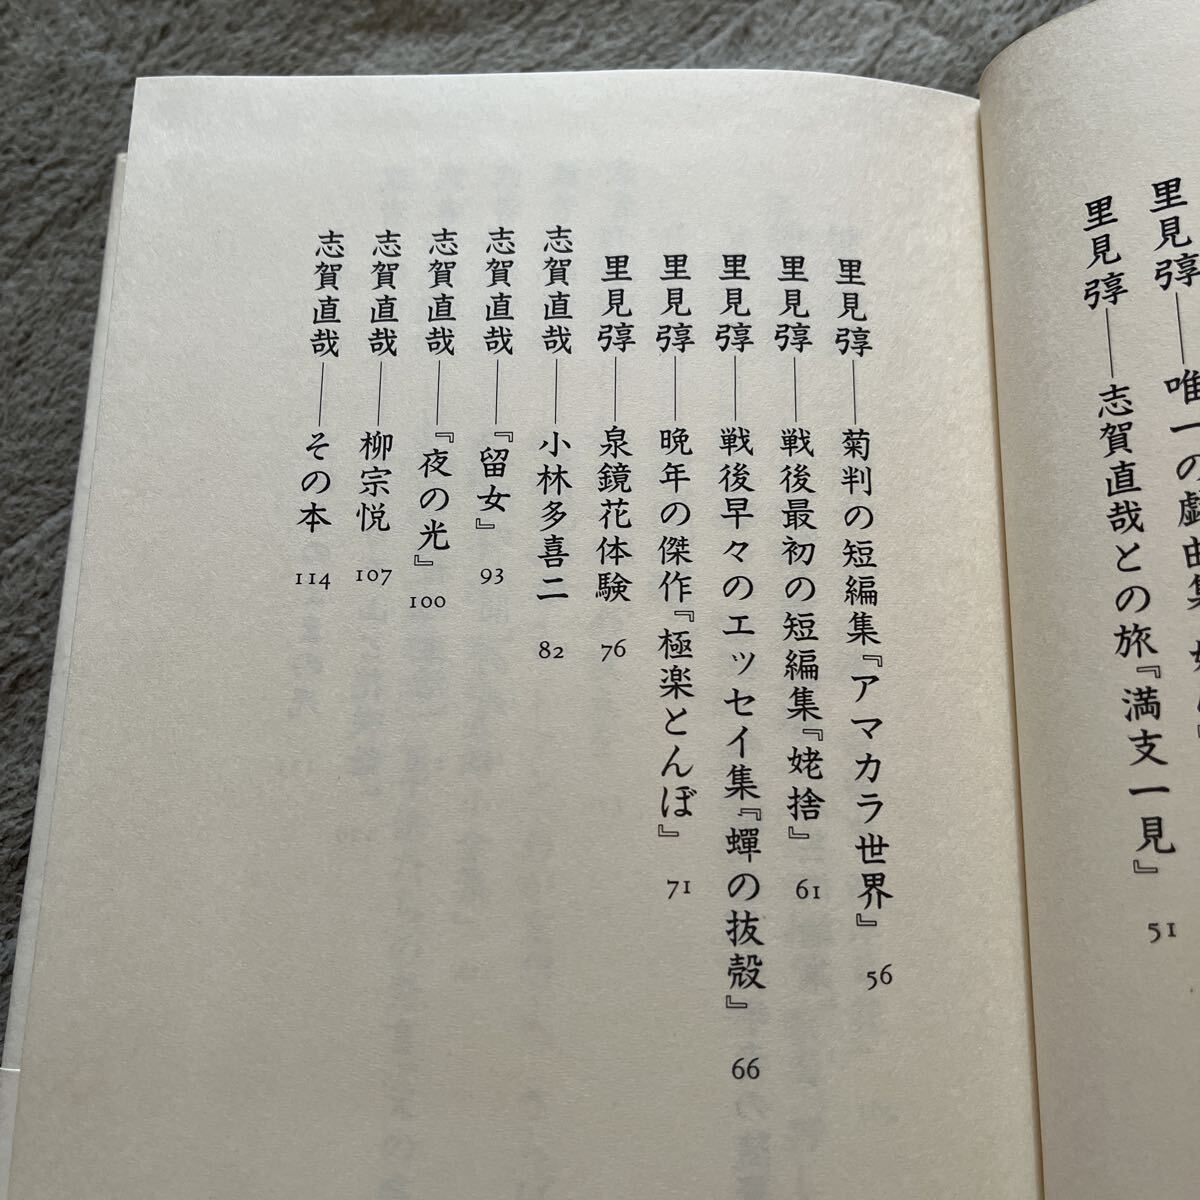 里見弴——唯一の戯曲集
里見弴——志賀直哉との旅『満支一見』 51
里見弴——菊判の短編集『アマカラ世界』 56
里見弴——戦後最初の短編集『姥捨』 61
里見弴——戦後早々のエッセイ集『蟬の抜殻』 66
里見弴——晩年の傑作『極楽とんぼ』 71
里見弴——泉鏡花体験 76
志賀直哉——小林多喜二 82
志賀直哉——『留女』 93
志賀直哉——『夜の光』 100
志賀直哉——柳宗悦 107
志賀直哉——その本 114